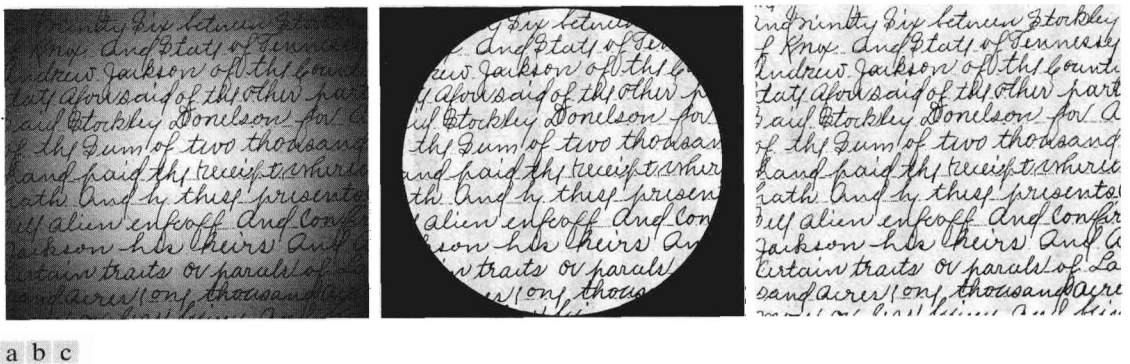 Six between Stockley
Knox And State of Tennessey
Andrew Jackson of the Count
taty aforesaid of the other part
aid Stockley Donelson for a
of the Sum of two thousand
hand paid the receipt wherei
hath And by these presents
ell alien enfeoff And Confir
Jackson his heirs And A
certain traits or parals of La
sand acres one thousand acre
Six between
And State of Ten
rew Jackson of the Co
aforesaid of the other p
aid Stockley Donelson for
the Sum of two thousan
and paid the receipt wher
th And by these present
alien enfeoff And Con
son his heirs An
in traits or parals
one thous
ind ninty Six between Stockley
Knox And State of Tennessey
Andrew Jackson of the Count
taty aforesaid of the other part
aid Stockley Donelson for a
of the Sum of two thousand
hand paid the receipt wherei
hath And by these presents
ell alien enfeoff And Confir
Jackson his heirs And A
certain traits or parals of La
sand acres one thousand acre
a b c